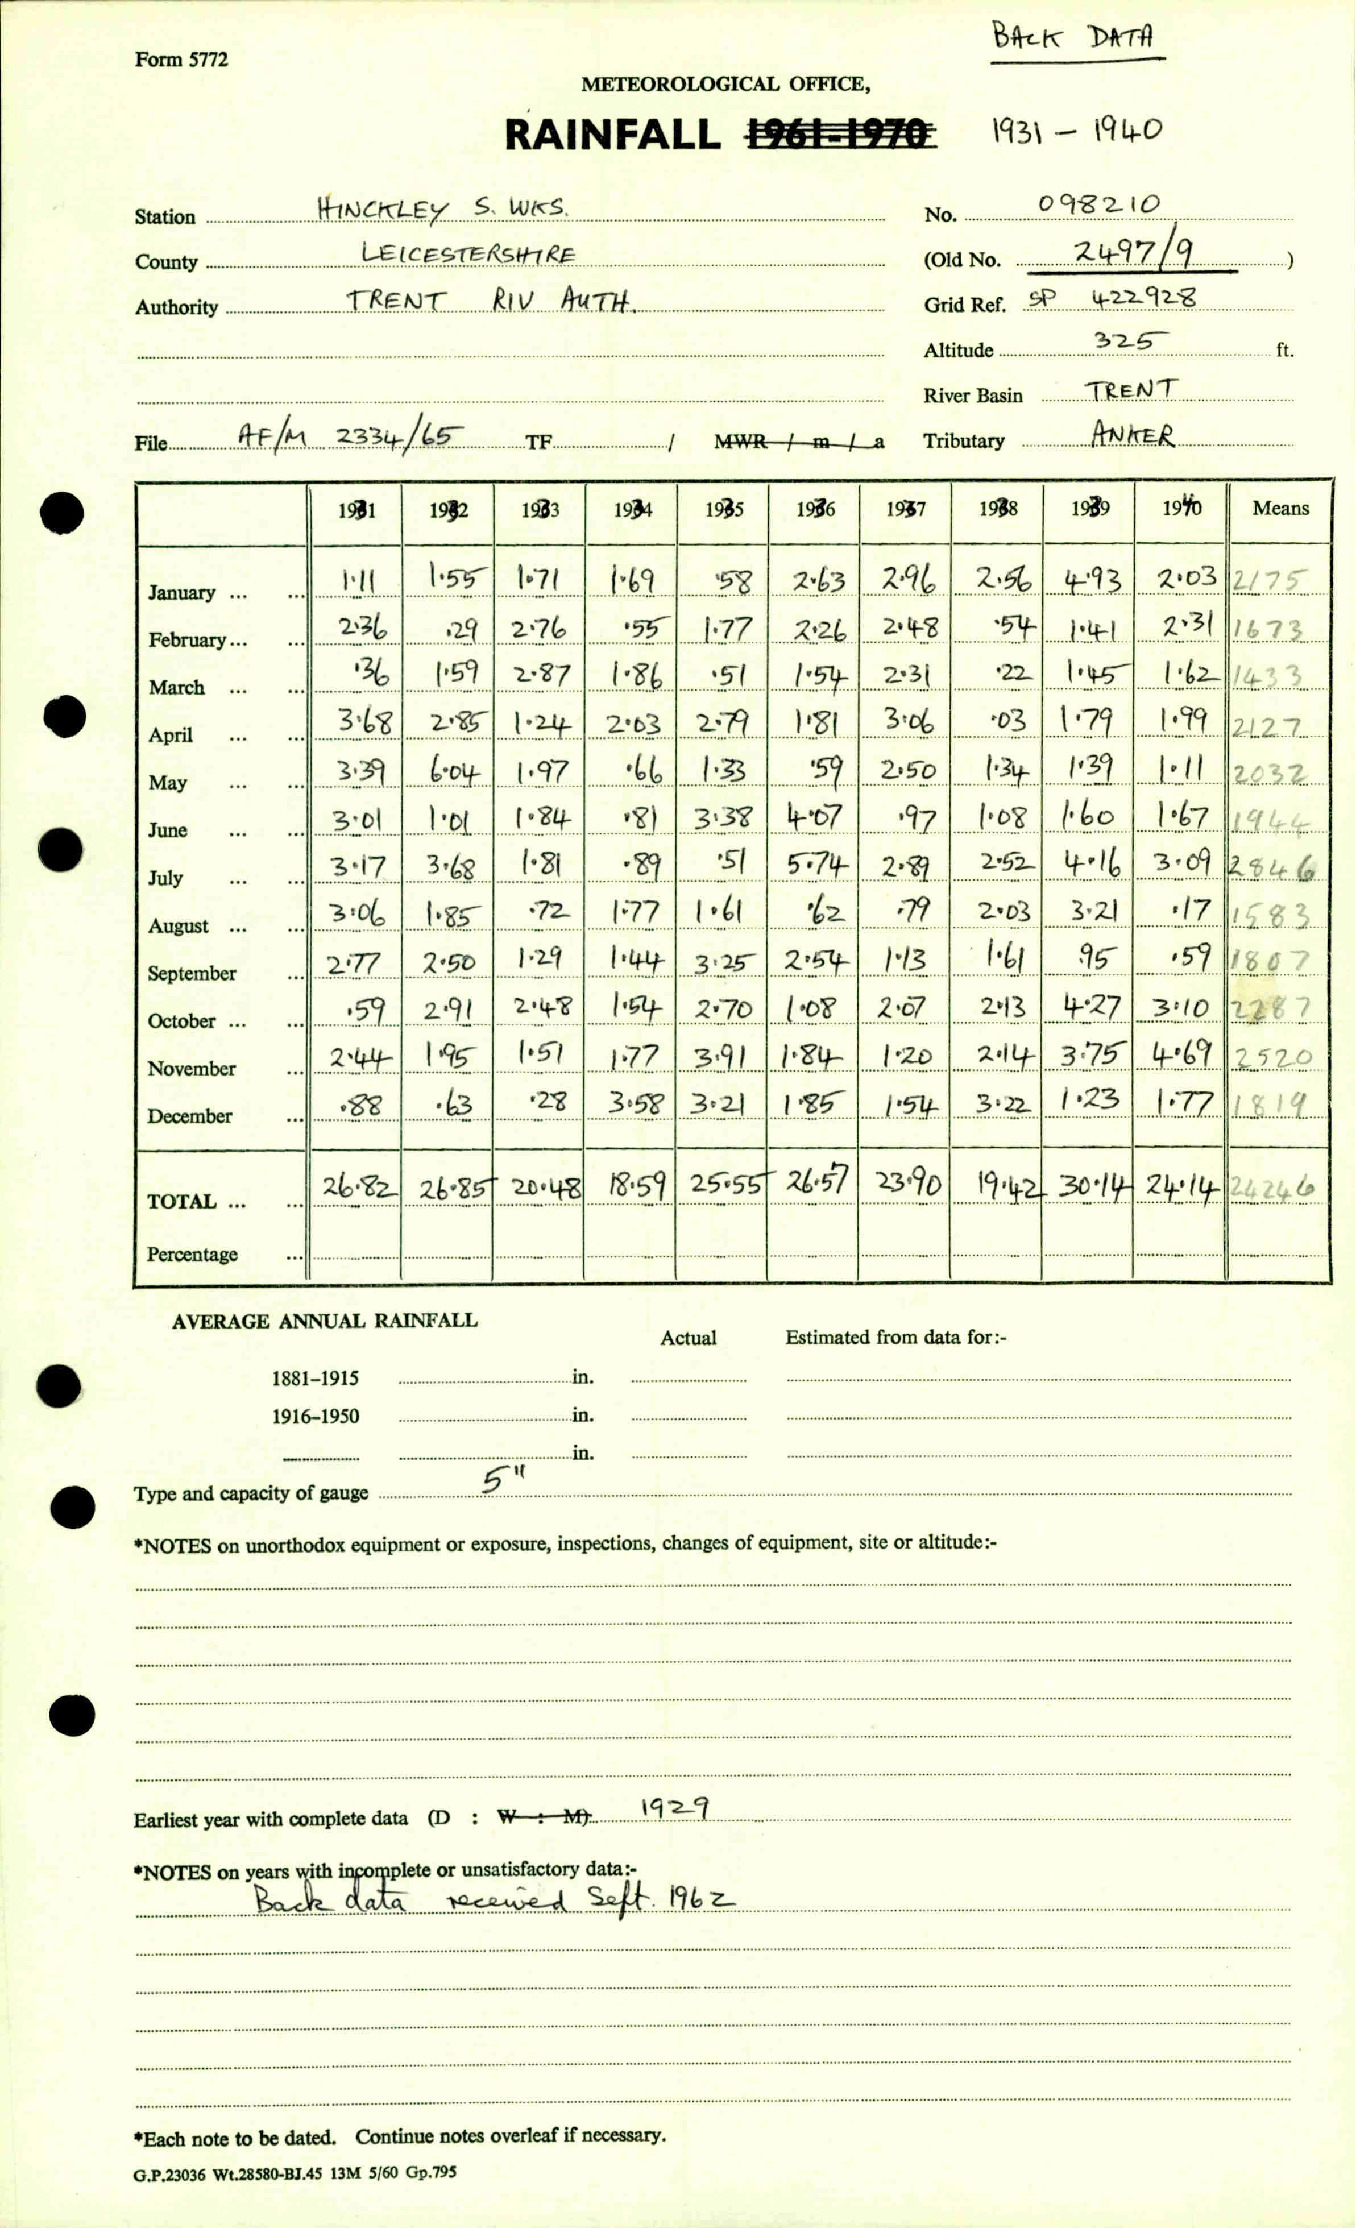 BACK DATA
Form 5772
METEOROLOGICAL OFFICE,
RAINFALL 1961-1970 1931 - 1940
Station HINCKLEY S. WKS. No. 098210
County LEICESTERSHIRE (Old No. 2497/9 )
Authority TRENT RIV AUTH. Grid Ref. SP 422928
Altitude 325 ft.
River Basin TRENT
File AF/M 2334/65 TF / MWR / m / a Tributary ANKER
1931 1932 1933 1934 1935 1936 1937 1938 1939 1940 Means
January ... ... 1.11 1.55 1.71 1.69 .58 2.63 2.96 2.56 4.93 2.03 2175
February ... ... 2.36 .29 2.76 .55 1.77 2.26 2.48 .54 1.41 2.31 1673
March ... ... .36 1.59 2.87 1.86 .51 1.54 2.31 .22 1.45 1.62 1433
April ... ... 3.68 2.85 1.24 2.03 2.79 1.81 3.06 .03 1.79 1.99 2127
May ... ... 3.39 6.04 1.97 .66 1.33 .59 2.50 1.34 1.39 1.11 2032
June ... ... 3.01 1.01 1.84 .81 3.38 4.07 .97 1.08 1.60 1.67 1944
July ... ... 3.17 3.68 1.81 .89 .51 5.74 2.89 2.52 4.16 3.09 2846
August ... ... 3.06 1.85 .72 1.77 1.61 .62 .79 2.03 3.21 .17 1583
September ... 2.77 2.50 1.29 1.44 3.25 2.54 1.13 1.61 .95 .59 1807
October ... ... .59 2.91 2.48 1.54 2.70 1.08 2.07 2.13 4.27 3.10 2287
November ... 2.44 1.95 1.51 1.77 3.91 1.84 1.20 2.14 3.75 4.69 2520
December ... .88 .63 .28 3.58 3.21 1.85 1.54 3.22 1.23 1.77 1819
TOTAL ... ... 26.82 26.85 20.48 18.59 25.55 26.57 23.90 19.42 30.14 24.14 24246
Percentage ...
AVERAGE ANNUAL RAINFALL
Actual Estimated from data for:-
1881-1915 in.
1916-1950 in.
in.
Type and capacity of gauge 5"
*NOTES on unorthodox equipment or exposure, inspections, changes of equipment, site or altitude:-
Earliest year with complete data (D : W : M) 1929
*NOTES on years with incomplete or unsatisfactory data:-
Back data received Sept. 1962
*Each note to be dated. Continue notes overleaf if necessary.
G.P.23036 Wt.28580-BJ.45 13M 5/60 Gp.795